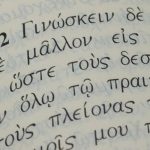 2 Γινώσκειν δὲ
μᾶλλον εἰς
ὥστε τοὺς δεσ
ὅλῳ τῷ πραι
τοὺς πλείονας τ
μου